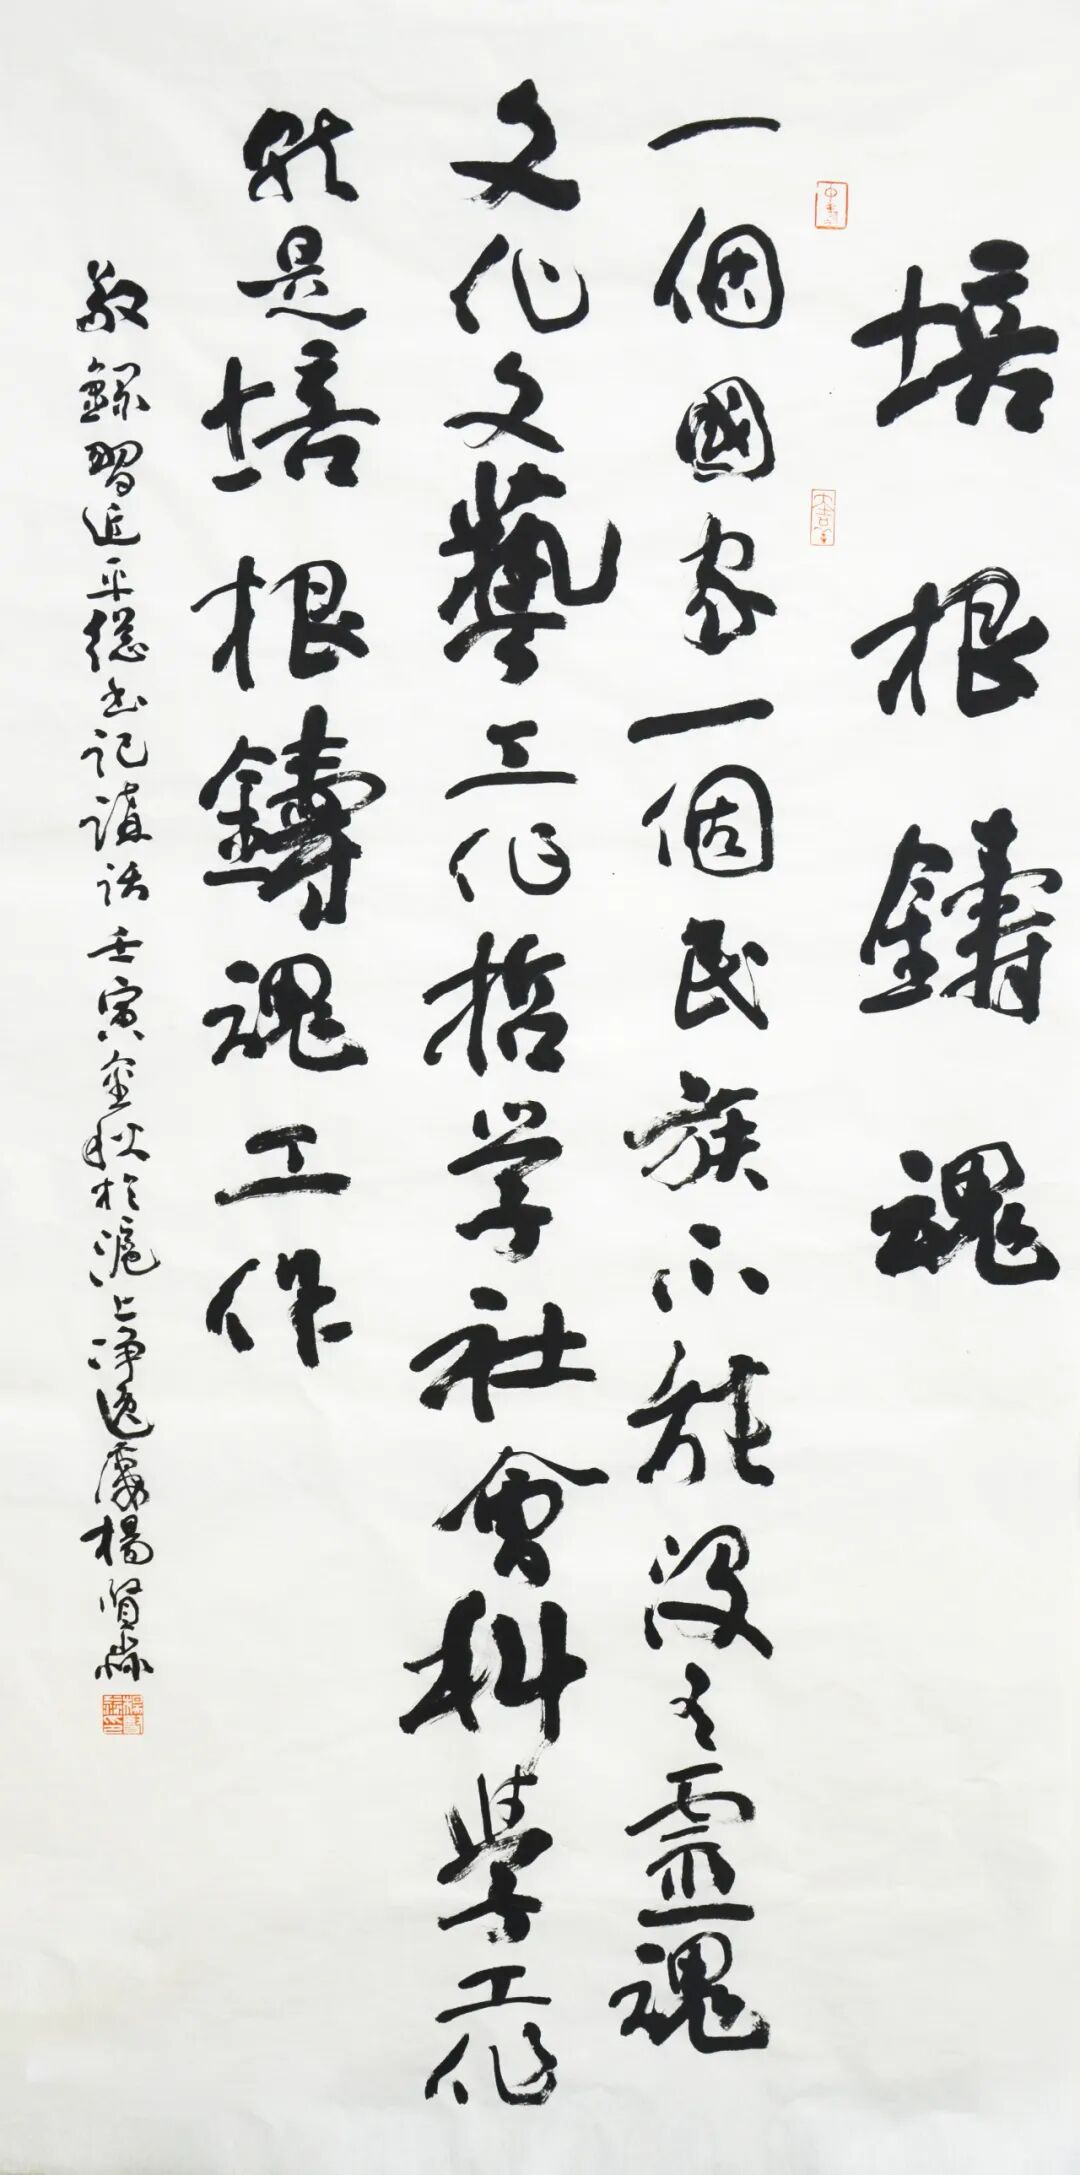 培根鑄魂
一個國家一個民族不能沒有靈魂
文化文藝工作哲学社會科學工作
就是培根鑄魂工作
敬錄習近平總书記講話壬寅金秋於滬上淨逸廬楊賢淼